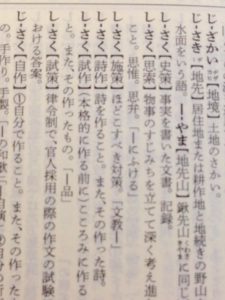 じ-ざかい【地境】土地のさかい。
じ-さき【地先】居住地または耕作地と地続きの野山
水面をいう語。―-やま【地先山】鍬先山に同じ
し-さく【史策】事実を書いた文書。記録。
し-さく【思索】物事のすじみちを立てて深く考え進
こと。思惟。思考。「―にふける」
し-さく【施策】ほどこすべき対策。「文教―」
し-さく【詩作】詩を作ること。また、その作った詩。
し-さく【試作】(本格的に作る前に)こころみに作る
と。また、その作ったもの。「―品」
し-さく【試策】律令制で、官人採用の際の作文の試験
おける答案。
じ-さく【自作】①自分で作ること。また、その作った
の。手作り。手製。「―の和歌」「―自演」②自分の